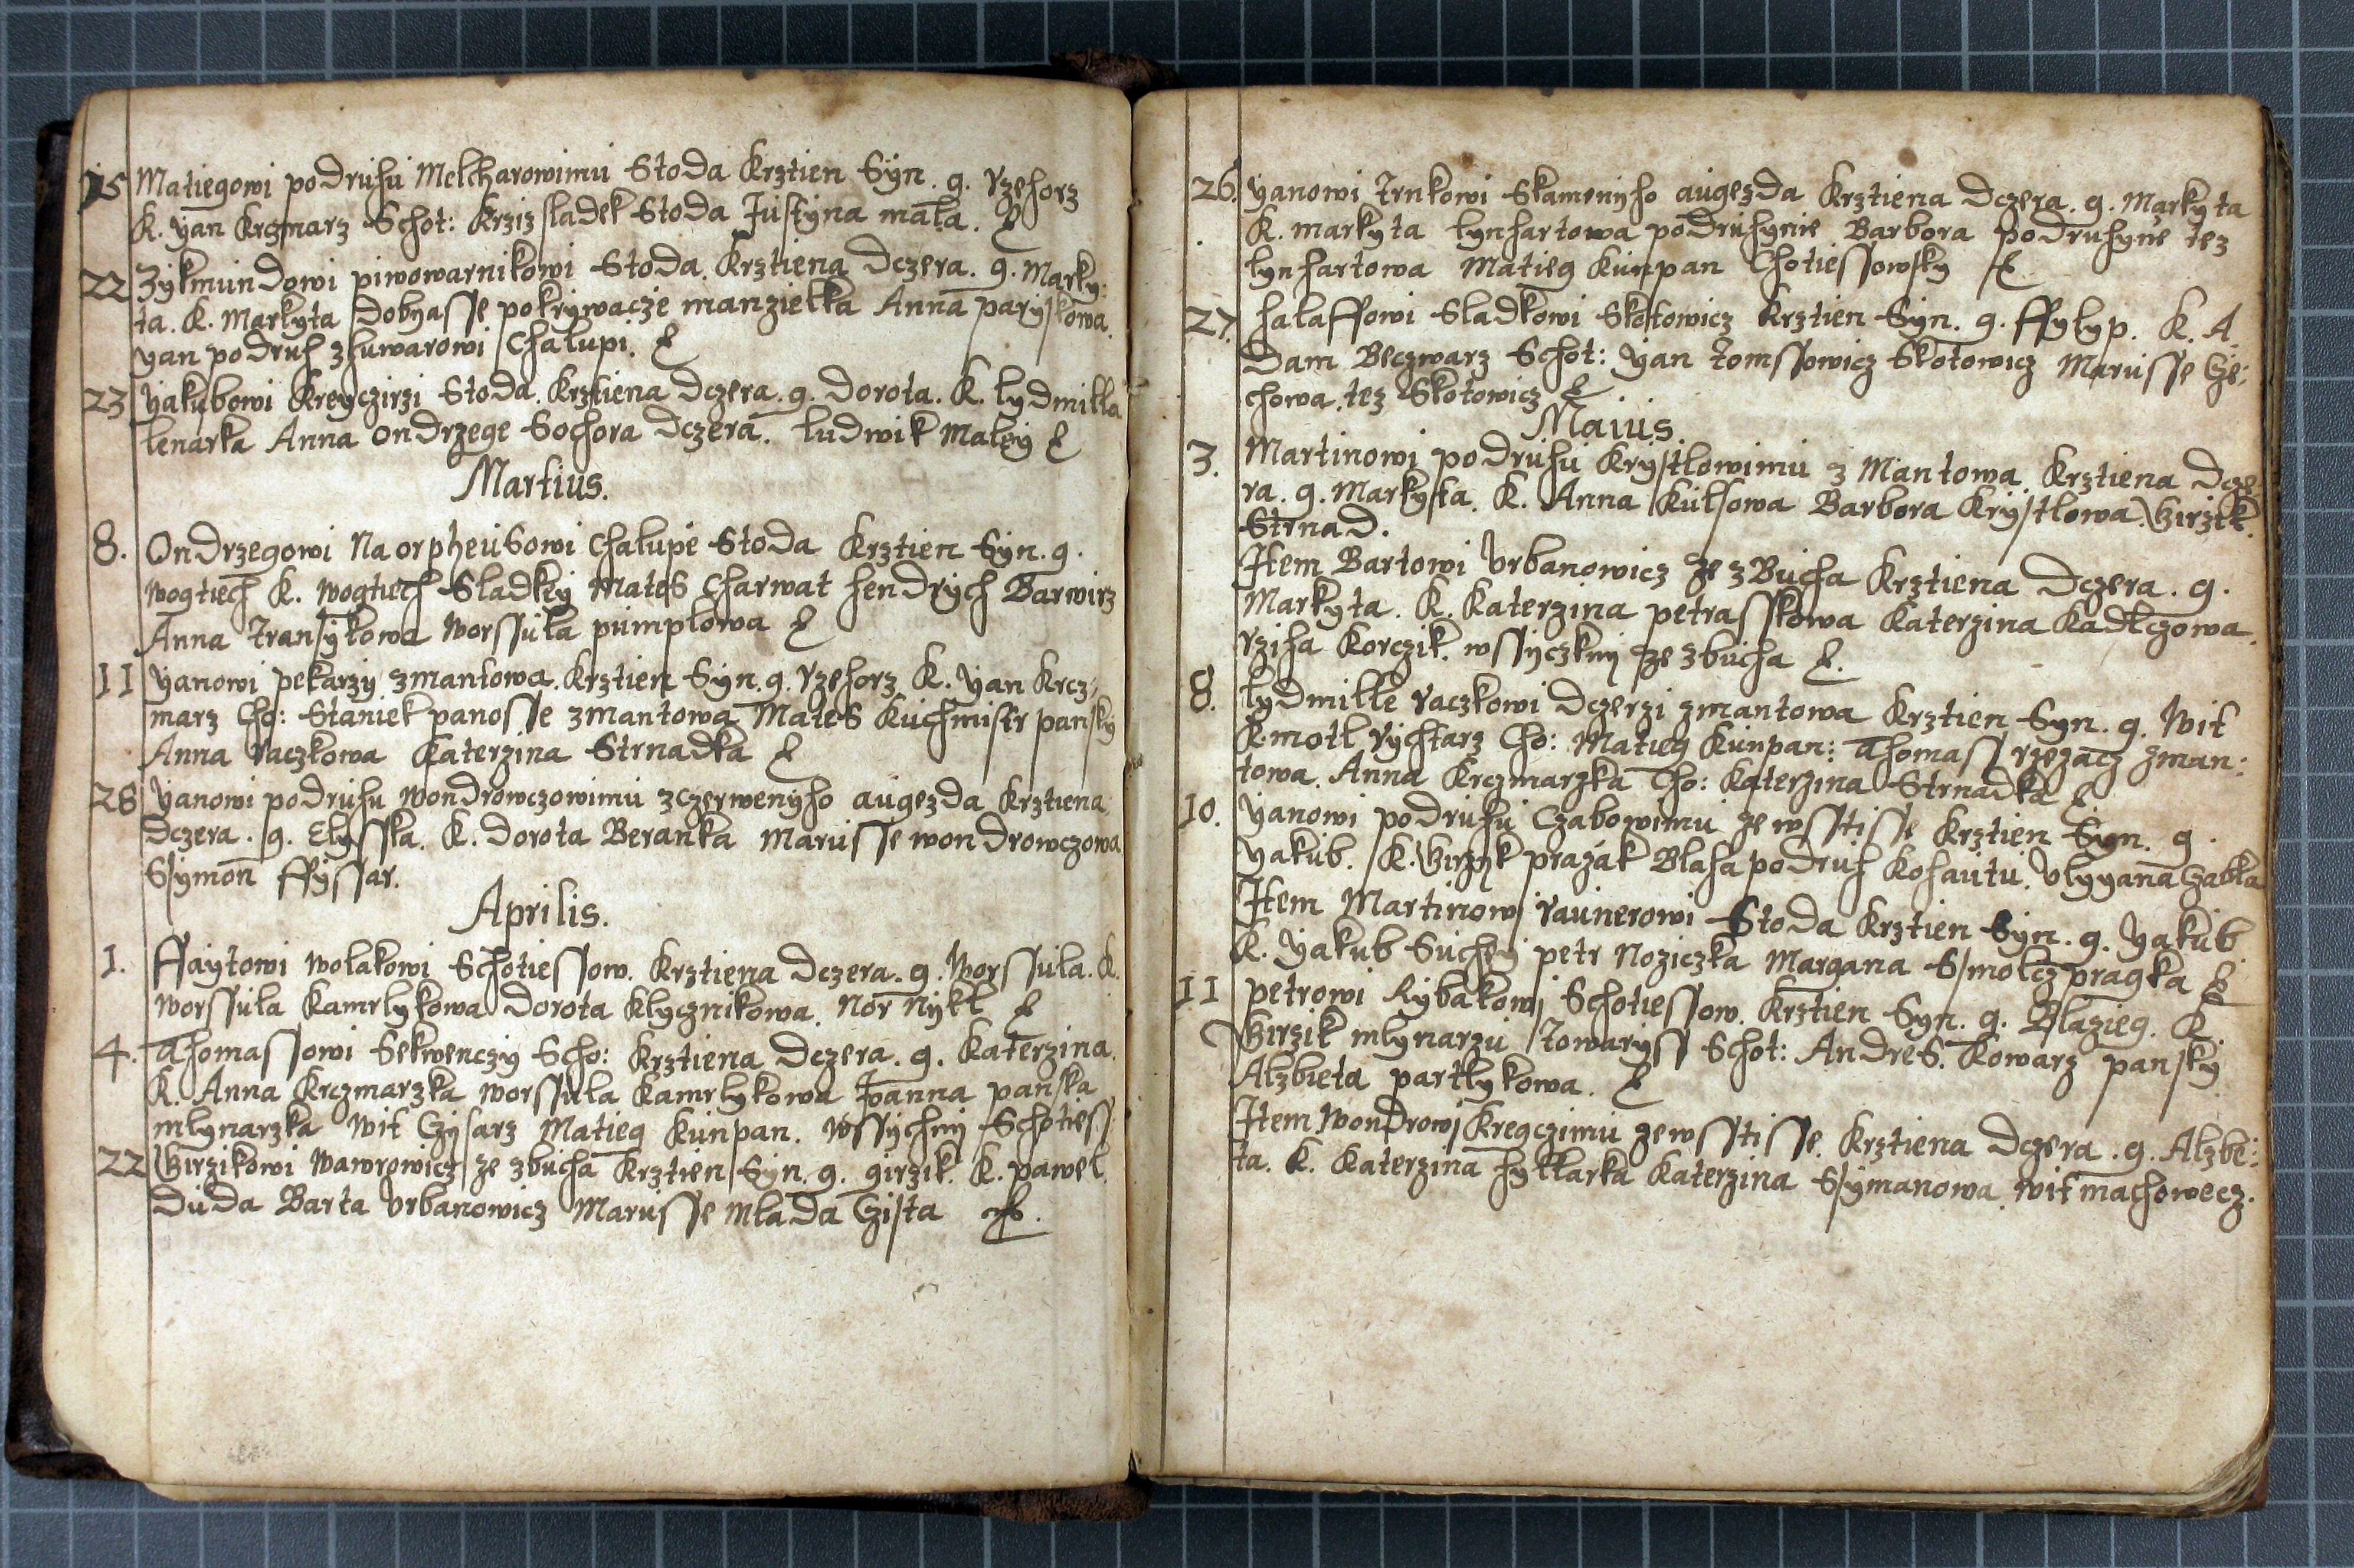 15 Matiegowi podruhu Melcharowimu Stoda Krztien Syn. g. Rzehorz
K. Yan Krczmarz Schot: Krziz sladek Stoda Justyna mala.
22 Zykmundowi piwowarnikowi Stoda. Krztiena Dczera. g. Marky:
ta. K. Markyta Dobyasse pokrywacze manzielka Anna paryskowa.
Yan podruh zhuwarowi Chalupi.
23 Yakubowi Kreyczirzi Stoda. Krztiena Dczera. g. Dorota. K. lydmilla
lenarka Anna Ondrzege Sochora Dczera. ludwik Maley
Martius.
8. Ondrzegowi Na orpheusowi Chalupe Stoda Krztien Syn. g.
Wogtiech K. Wogtiech Sladkey Mates Charwat hendrych Barwirz
Anna Transykowa Worssula pumplowa
11 Yanowi pekarzy zmantowa. Krztien Syn. g. Rzehorz K. Yan Krcz:
marz Cho: Staniek panosse zmantowa Mates Kuchmistr pansky
Anna Raczkowa Katerzina Strnadka
28 Yanowi podruhu Wondrowczowimu zczerwenyho augezda Krztiena
Dczera. g. Elysska. K. Dorota Beranka Marusse wondrowczowa
Symon ffyssar.
Aprilis.
1. ffaytowi Wolakowi Schotiessow. Krztiena Dczera. g. Worssula. K.
Worssula Kamrlykowa Dorota Klycznikowa. Nor Nykl
4. Thomassowi Sekwenczy Scho: Krztiena Dczera. g. Katerzina.
K. Anna Krczmarzka Worssula Kamrlykowa Joanna panska
mlynarzka Wit Czysarz Matieg Kunpan. Wssychny Schotiess
22 Girzikowi Wawrowicz ze zbucha Krztien Syn. g. girzik. K. pawel
Duda Barta Urbanowicz Marusse mlada Gista
26. Yanowi Trnkowi Skamenyho augezda Krztiena Dczera. g. Markyta
K. markyta lynhartowa podruhynie Barbora podruhyne tez
lynhartowa Matieg Kunpan Chotiessowsky
27. halaffowi Sladkowi Skotowicz Krztien Syn. g. ffylyp. K. A
Dam Beczwarz Schot: Yan tomssowicz Skotowicz Marusse Cze:
chowa tez Skotowicz
Maius.
3. Martinowi podruhu Krystlowimu z Mantowa. Krztiena Dcze
ra. g. Markyta. K. Anna Kulhowa Barbora Krystlowa. Girzik
Strnad.
Item Bartowi Urbanowicz ze zBucha Krztiena Dczera. g.
Markyta. K. Katerzina petrasskowa Katerzina Kadlczowa.
Rziha Korczik. wssyczkny ze zbucha
8. lydmille Raczkowi Dczerzi zmantowa Krztien Syn. g. Wit
K. motl Rychtarz Cho: Matieg Kunpan: Thomass Rzezacz zman:
towa. Anna Krczmarzka Cho: Katerzina Strnadka
10. Yanowi podruhu Czabowimu ze wsstisse Krztien Syn. g.
Yakub. K. Girzyk prazak Blaha podruh Kohautu. Ulyyana Gabka
Item Martinowi Raunerowi Stoda Krztien Syn. g. Yakub
K. Yakub Suchey petr Noziczka Margana Smolcz pragka
11 petrowi Rybakowi Schotiessow. Krztien Syn. g. Blazieg. K.
Girzik mlynarzu towaryss Schot: Andres. Kowarz pansky
Alzbieta partlykowa.
Item Wondrowi Kregczimu ze wsstisse. Krztiena Dczera. g. Alzbe:
ta. K. Katerzina hyttarka Katerzina Symanowa. Wit machowecz.